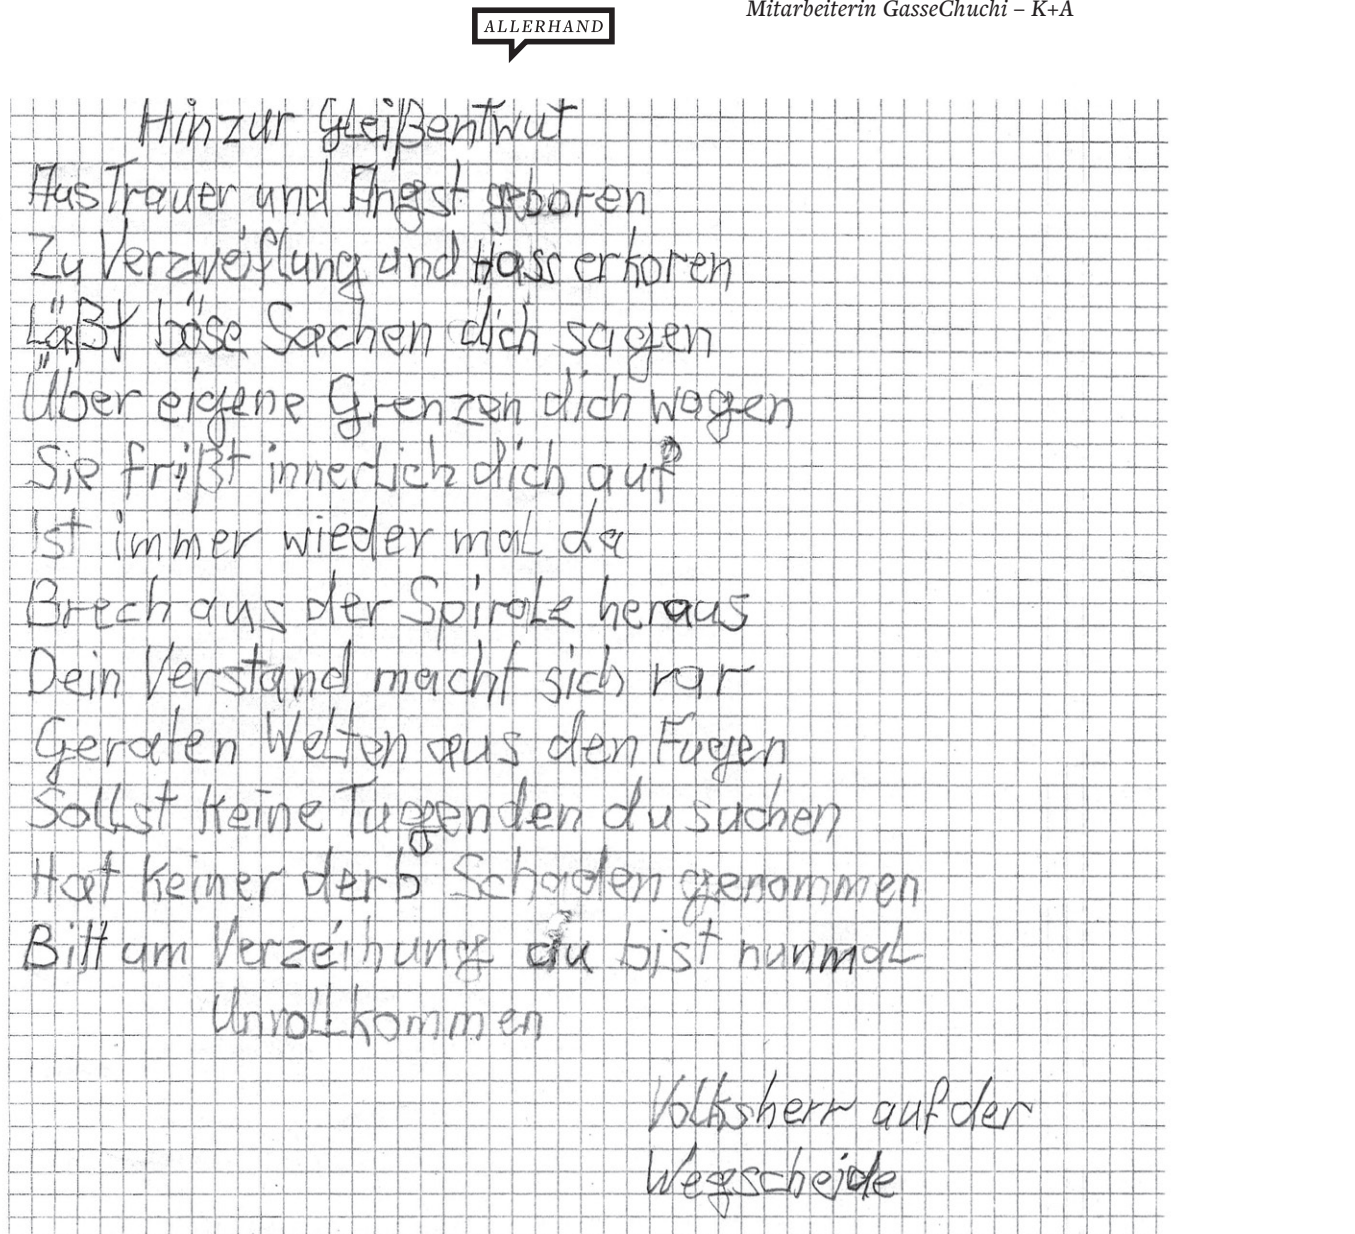 Mitarbeiterin GasseChuchi – K+A
ALLERHAND
Hinzur Gleißentwut
Aus Trauer und Angst geboren
Zu Verzweiflung und Hass erkoren
Läßt böse Sachen dich sagen
Über eigene Grenzen dich wagen
Sie frißt innerlich dich auf
Ist immer wieder mal da
Brech aus der Spirale heraus
Dein Verstand macht sich rar
Geraten Welten aus den Fugen
Sollst keine Tugenden du suchen
Hat keiner derb Schaden genommen
Bitt um Verzeihung du bist nunmal
Unvollkommen
Volksherr auf der
Wegscheide